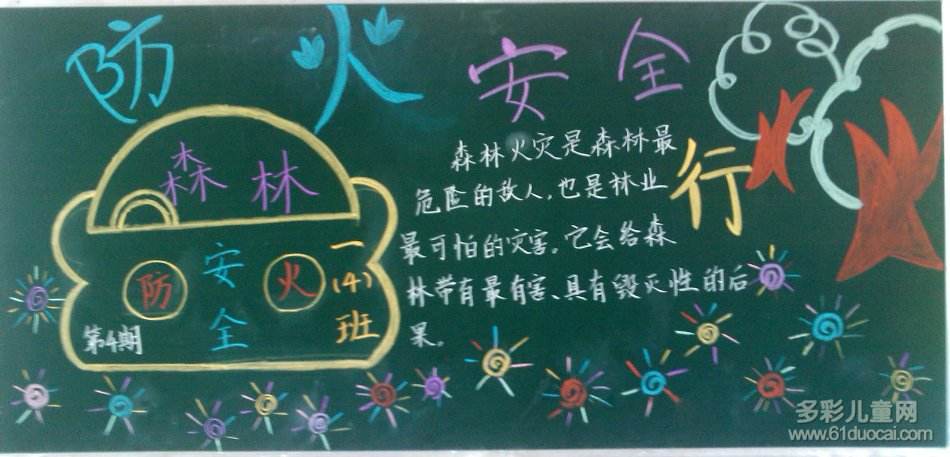 防火安全行
森林
防安全火
一(4)班
第4期
森林火灾是森林最
危险的敌人,也是林业
最可怕的灾害。它会给森
林带有最有害、具有毁灭性的后
果。
多彩儿童网
www.61duocai.com